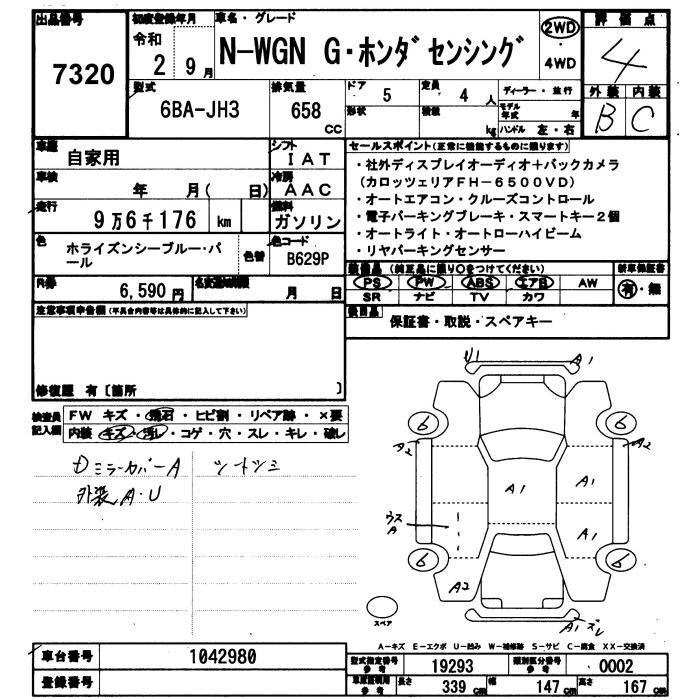 出品番号 初度登録年月 車名・グレード 評価点
7320
令和 2 9月
N-WGN G・ホンダセンシング
2WD ・ 4WD
4
型式 排気量 ドア 5 定員 4人 ディーラー・並行
6BA-JH3 658 cc
形状 積載 kg モデル年式 年
ハンドル 左・右
外装 内装
B C
車歴 自家用
シフト IAT
車検 年 月( 日)
冷房 AAC
走行 9万6千176 km
燃料 ガソリン
色 ホライズンシーブルー・パール 色替
色コード B629P
R券 6,590円
名変期限 月 日
セールスポイント(正常に機能するものに限ります)
・社外ディスプレイオーディオ+バックカメラ
(カロッツェリアFH-6500VD)
・オートエアコン・クルーズコントロール
・電子パーキングブレーキ・スマートキー2個
・オートライト・オートローハイビーム
・リヤパーキングセンサー
装備品 (純正品に限り○をつけてください) 新車保証書
PS PW ABS エアB AW 有・無
SR ナビ TV カワ
後日品 保証書・取説・スペアキー
注意事項申告欄(不具合内容等は具体的に記入して下さい)
修復歴 有〔箇所 〕
検査員記入欄
FW キズ・飛石・ヒビ割・リペア跡・×要
内装 キズ・汚レ・コゲ・穴・スレ・キレ・破レ
Dミラーカバー A シートシミ
外装 A・U
U1 A1
6 6
A2 A2
A1 A1
ウスA A1
6 6
A2
A1 ズレ
スペア
A-キズ E-エクボ U-凹み W-補修跡 S-サビ C-腐食 XX-交換済
車台番号 1042980
登録番号
型式指定番号参考 19293 類別区分番号参考 0002
車庫証明用参考 長さ 339cm 幅 147cm 高さ 167cm